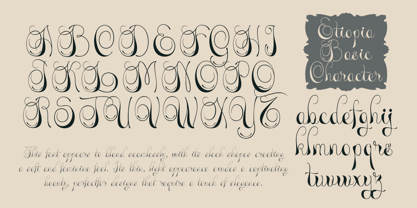 A B C D E F G H I
J K L M N O P Q
R S T U V W X Y Z
This font appears to blend seamlessly, with its sleek shapes creating
a soft and feminine feel. The thin, light appearance creates a captivating
beauty, perfect for designs that require a touch of elegance.
Ettopia
Basic
Character
abcdefghij
klmnopqrs
tuvwxyz